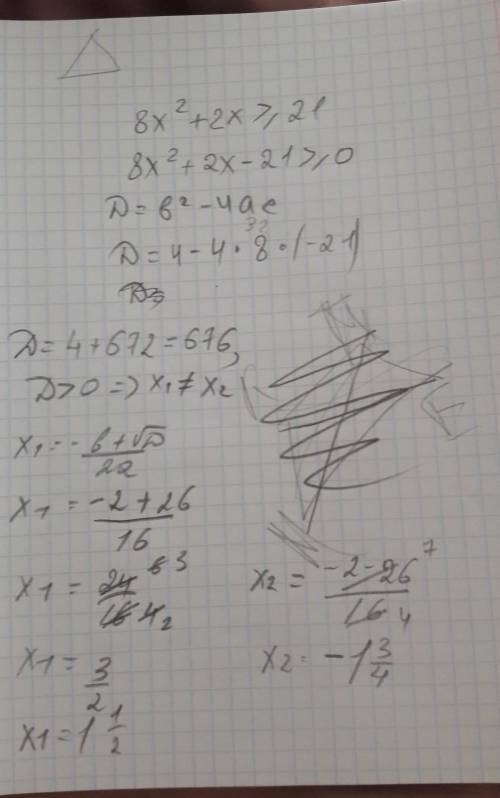 8x² + 2x ⩾ 21
8x² + 2x - 21 ⩾ 0
D = b² - 4ac
32
D = 4 - 4 · 8 · (-21)
D=
D = 4 + 672 = 676,
D > 0 => x₁ ≠ x₂
x₁ = -b + √D / 2a
x₁ = -2 + 26 / 16
x₁ = 24 6 3 / 16 4 2
x₁ = 3/2
x₁ = 1 1/2
x₂ = -2 - 26 7 / 16 4
x₂ = -1 3/4